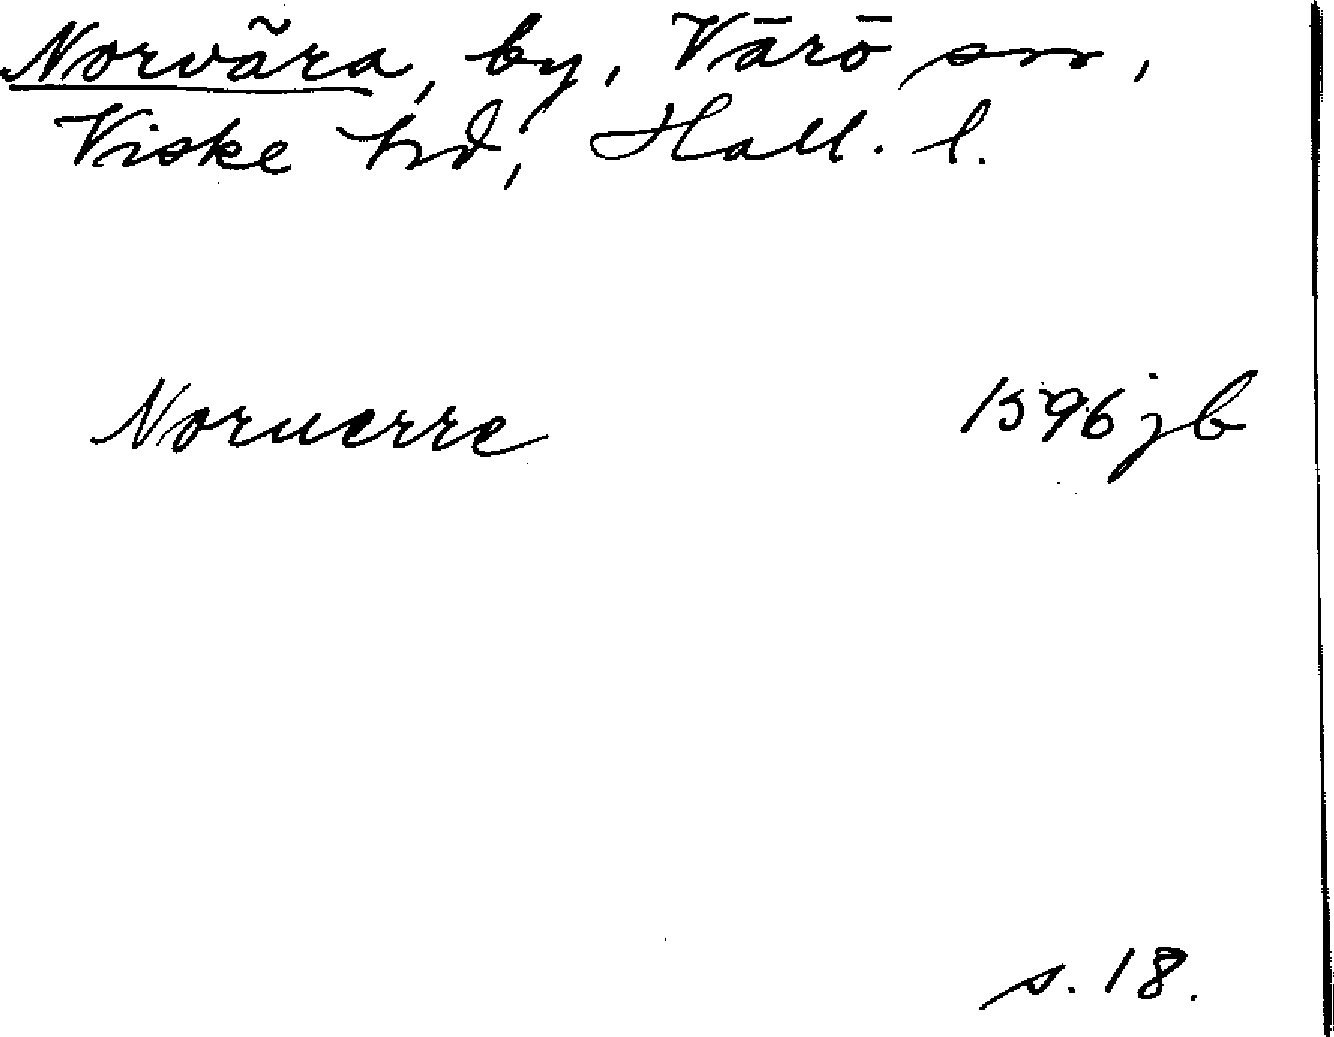 Norvära, by, Värö sn,
Viske hd, Hall. l.
Noruerre 1596 jb
s. 18.